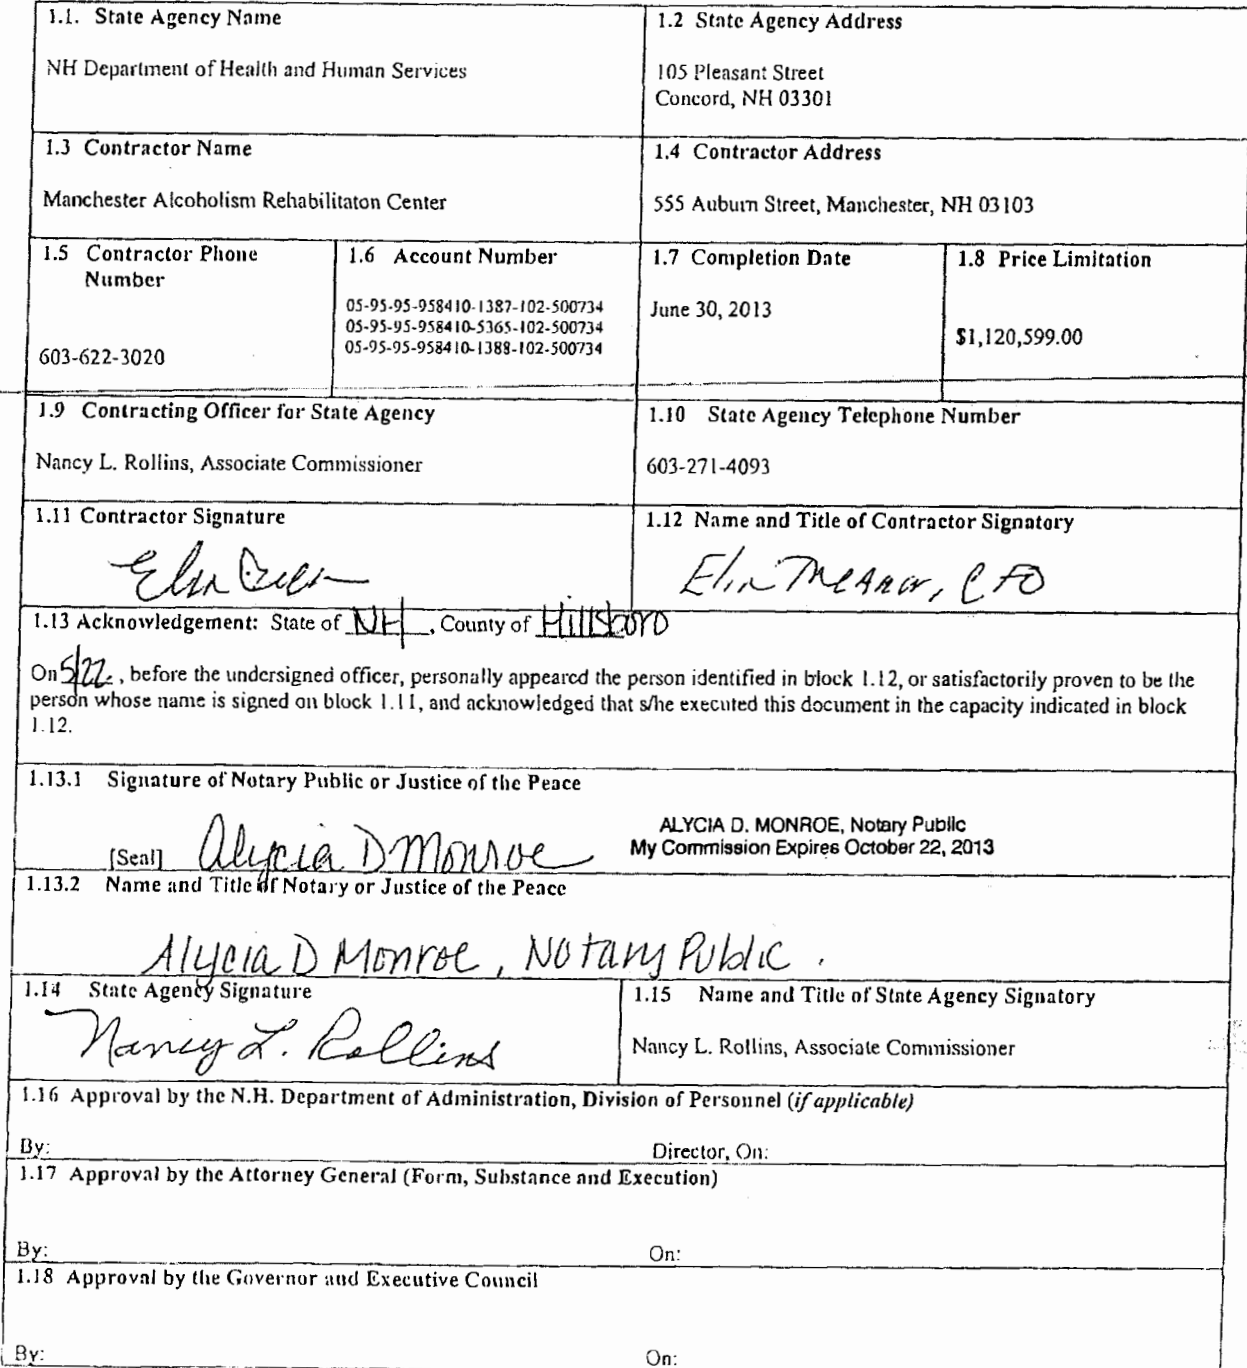 1.1. State Agency Name
NH Department of Health and Human Services
1.2 State Agency Address
105 Pleasant Street
Concord, NH 03301
1.3 Contractor Name
Manchester Alcoholism Rehabilitaton Center
1.4 Contractor Address
555 Auburn Street, Manchester, NH 03103
1.5 Contractor Phone
Number
603-622-3020
1.6 Account Number
05-95-95-958410-1387-102-500734
05-95-95-958410-5365-102-500734
05-95-95-958410-1388-102-500734
1.7 Completion Date
June 30, 2013
1.8 Price Limitation
$1,120,599.00
1.9 Contracting Officer for State Agency
Nancy L. Rollins, Associate Commissioner
1.10 State Agency Telephone Number
603-271-4093
1.11 Contractor Signature
1.12 Name and Title of Contractor Signatory
Elin Treanor, CFO
1.13 Acknowledgement: State of NH, County of Hillsboro
On 5/22, before the undersigned officer, personally appeared the person identified in block 1.12, or satisfactorily proven to be the
person whose name is signed on block 1.11, and acknowledged that s/he executed this document in the capacity indicated in block
1.12.
1.13.1 Signature of Notary Public or Justice of the Peace
[Seal] Alycia D Monroe
ALYCIA D. MONROE, Notary Public
My Commission Expires October 22, 2013
1.13.2 Name and Title of Notary or Justice of the Peace
Alycia D Monroe, Notary Public.
1.14 State Agency Signature
Nancy L. Rollins
1.15 Name and Title of State Agency Signatory
Nancy L. Rollins, Associate Commissioner
1.16 Approval by the N.H. Department of Administration, Division of Personnel (if applicable)
By: Director, On:
1.17 Approval by the Attorney General (Form, Substance and Execution)
By: On:
1.18 Approval by the Governor and Executive Council
By: On: